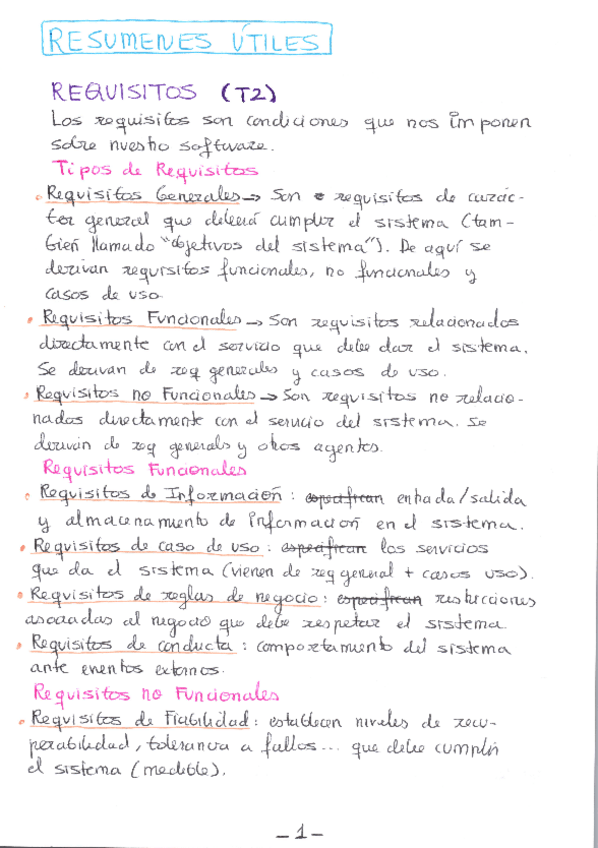 RESUMENES ÚTILES
REQUISITOS (T2)
Los requisitos son condiciones que nos imponen
sobre nuestro software.
Tipos de Requisitos
Requisitos Generales → Son requisitos de carác-
ter general que deberá cumplir el sistema (tam-
bién llamado "objetivos del sistema"). De aquí se
derivan requisitos funcionales, no funcionales y
casos de uso.
Requisitos Funcionales → Son requisitos relacionados
directamente con el servicio que debe dar el sistema.
Se derivan de req generales y casos de uso.
Requisitos no Funcionales → Son requisitos no relacio-
nados directamente con el servicio del sistema. Se
derivan de req generals y otros agentes.
Requisitos Funcionales
Requisitos de Información : especifican entrada/salida
y almacenamiento de información en el sistema.
Requisitos de caso de uso : especifican los servicios
que da el sistema (vienen de req general + casos uso).
Requisitos de reglas de negocio : especifican restricciones
asociadas al negocio que debe respetar el sistema
Requisitos de conducta : comportamiento del sistema
ante eventos externos.
Requisitos no Funcionales
Requisitos de Fiabilidad : establecen niveles de recu-
perabilidad, tolerancia a fallos... que debe cumplir
el sistema (medible).
-1-